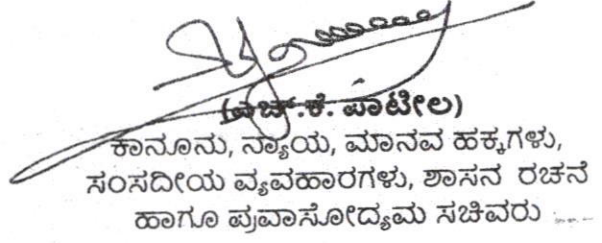 (ಎಚ್.ಕೆ. ಪಾಟೀಲ)
ಕಾನೂನು, ನ್ಯಾಯ, ಮಾನವ ಹಕ್ಕಗಳು,
ಸಂಸದೀಯ ವ್ಯವಹಾರಗಳು, ಶಾಸನ ರಚನೆ
ಹಾಗೂ ಪ್ರವಾಸೋದ್ಯಮ ಸಚಿವರು